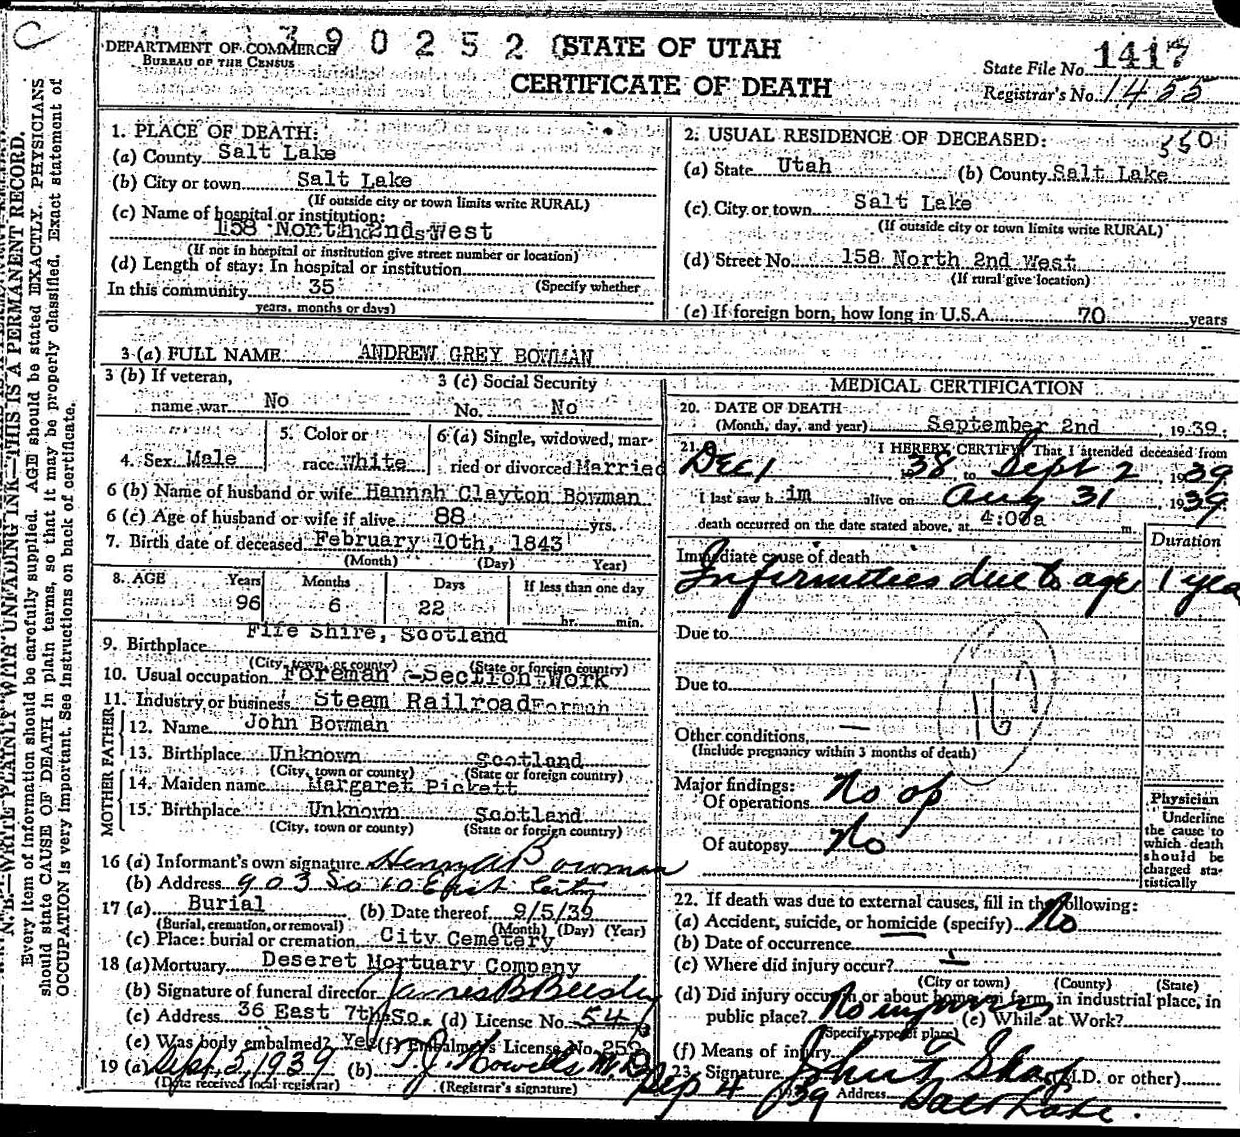 DEPARTMENT OF COMMERCE
BUREAU OF THE CENSUS
390252
STATE OF UTAH
CERTIFICATE OF DEATH
State File No. 1417
Registrar's No. 1455
1. PLACE OF DEATH:
(a) County Salt Lake
(b) City or town Salt Lake
(If outside city or town limits write RURAL)
(c) Name of hospital or institution:
158 North 2nd West
(If not in hospital or institution give street number or location)
(d) Length of stay: In hospital or institution
In this community 35 (Specify whether
years, months or days)
2. USUAL RESIDENCE OF DECEASED: 550
(a) State Utah (b) County Salt Lake
(c) City or town Salt Lake
(If outside city or town limits write RURAL)
(d) Street No. 158 North 2nd West
(If rural give location)
(e) If foreign born, how long in U.S.A. 70 years
3 (a) FULL NAME ANDREW GREY BOWMAN
3 (b) If veteran,
name war No
3 (c) Social Security
No. No
4. Sex Male
5. Color or
race White
6 (a) Single, widowed, mar-
ried or divorced Married
6 (b) Name of husband or wife Hannah Clayton Bowman
6 (c) Age of husband or wife if alive 88 yrs.
7. Birth date of deceased February 10th, 1843
(Month) (Day) Year)
8. AGE Years Months Days If less than one day
96 6 22 hr. min.
9. Birthplace Fife Shire, Scotland
(City, town, or county) (State or foreign country)
10. Usual occupation Foreman - Section Work
11. Industry or business Steam Railroad
FATHER
12. Name John Bowman
13. Birthplace Unknown Scotland
(City, town or county) (State or foreign country)
MOTHER
14. Maiden name Margaret Pickett
15. Birthplace Unknown Scotland
(City, town or county) (State or foreign country)
16 (a) Informant's own signature Henry A Bowman
(b) Address 903 So 10 East City
17 (a) Burial (b) Date thereof 9/5/39
(Burial, cremation, or removal) (Month) (Day) (Year)
(c) Place: burial or cremation City Cemetery
18 (a) Mortuary Deseret Mortuary Company
(b) Signature of funeral director James B Beesley
(c) Address 36 East 7th So. (d) License No. 54
(e) Was body embalmed? Yes (f) Embalmer's License No. 253
19 (a) Sept 5, 1939 (b) T. J. Howells M.D.
(Date received local registrar) (Registrar's signature)
MEDICAL CERTIFICATION
20. DATE OF DEATH
(Month, day, and year) September 2nd, 1939;
21. I HEREBY CERTIFY, That I attended deceased from
Dec 1 38 to Sept 2 1939
I last saw him alive on Aug 31 1939
death occurred on the date stated above, at 4:00a m.
Duration
Immediate cause of death
Infirmities due to age 1 year
Due to
Due to
Other conditions —
(Include pregnancy within 3 months of death)
Major findings:
Of operations No op
Of autopsy No
Physician
Underline
the cause to
which death
should be
charged sta-
tistically
22. If death was due to external causes, fill in the following:
(a) Accident, suicide, or homicide (specify) No
(b) Date of occurrence
(c) Where did injury occur?
(City or town) (County) (State)
(d) Did injury occur in or about home, on farm, in industrial place, in
public place? No injury (e) While at Work?
(Specify type of place)
(f) Means of injury
23. Signature John F. Sharp (M.D. or other)
Sep 4 1939 Address Salt Lake.
N. B.—WRITE PLAINLY WITH UNFADING INK—THIS IS A PERMANENT RECORD.
Every item of information should be carefully supplied. AGE should be stated EXACTLY. PHYSICIANS
should state CAUSE OF DEATH in plain terms, so that it may be properly classified. Exact statement of
OCCUPATION is very important. See instructions on back of certificate.